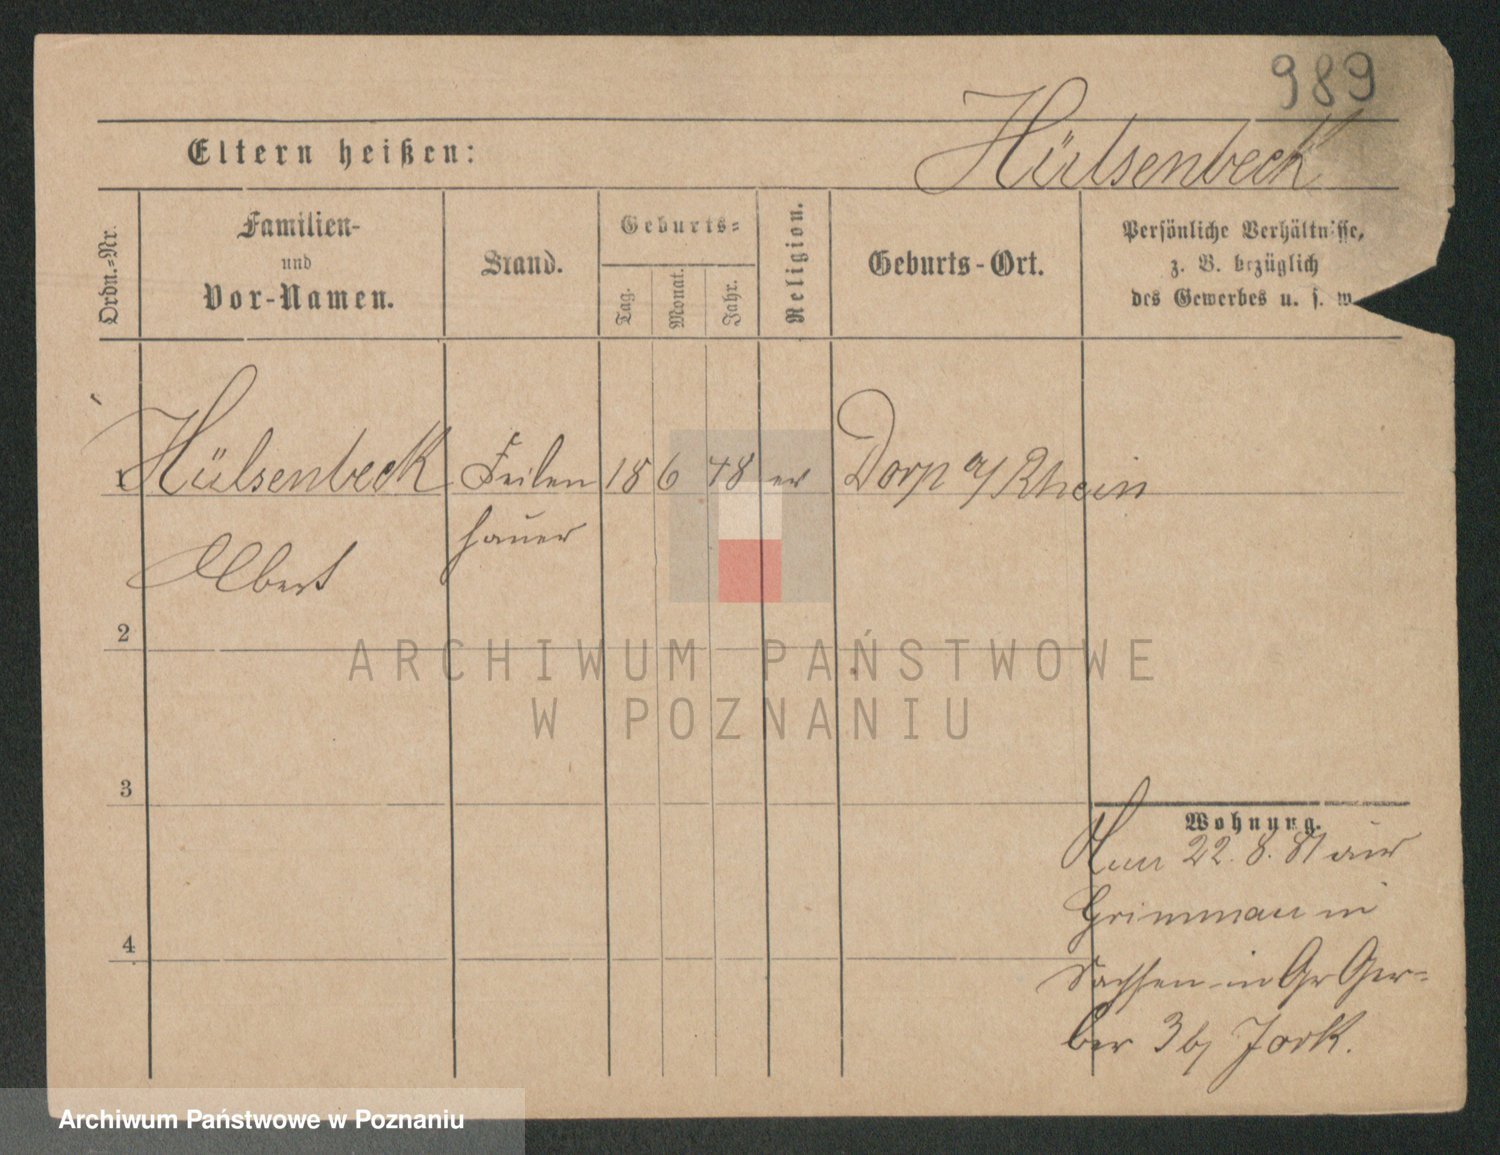 989
Hülsenbeck
Eltern heißen:
Ordn.-Nr.
Familien-
und
Vor-Namen.
Stand.
Geburts-
Tag.
Monat.
Jahr.
Religion.
Geburts-Ort.
Persönliche Verhältnisse,
z. B. bezüglich
des Gewerbes u. s. w.
Hülsenbeck Feilen 18 6 48 ev Dorp a/ Rhein
hauer
Albert
2
ARCHIWUM PAŃSTWOWE
W POZNANIU
3
Wohnung.
22. 8. 81 aus
Grimmau in
4
Sachsen in Gr Ger-
ber 3 b/ Jork.
Archiwum Państwowe w Poznaniu